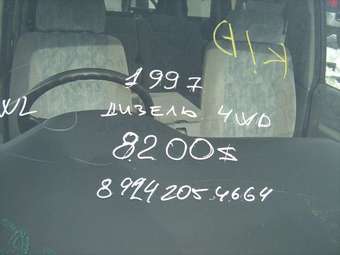 КІД
1997
XL ДИЗЕЛЬ 4WD
8200$
8 924 205 4664